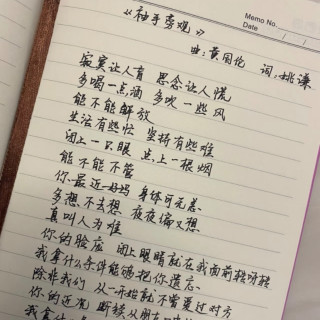 Memo No.
Date
《袖手旁观》
曲:黄国伦 词:姚谦
寂寞让人盲 思念让人慌
多喝一点酒 多吹一些风
能不能解放
生活有些忙 坚持有些难
闭上一只眼 点上一根烟
能不能不管
你最近好吗 身体可无恙
多想不去想 夜夜偏又想
真叫人为难
你的脸庞 闭上眼睛就在我面前转呀转
我拿什么条件能够把你遗忘
除非我们 从一开始就不曾爱过对方
你的近况 断续从朋友